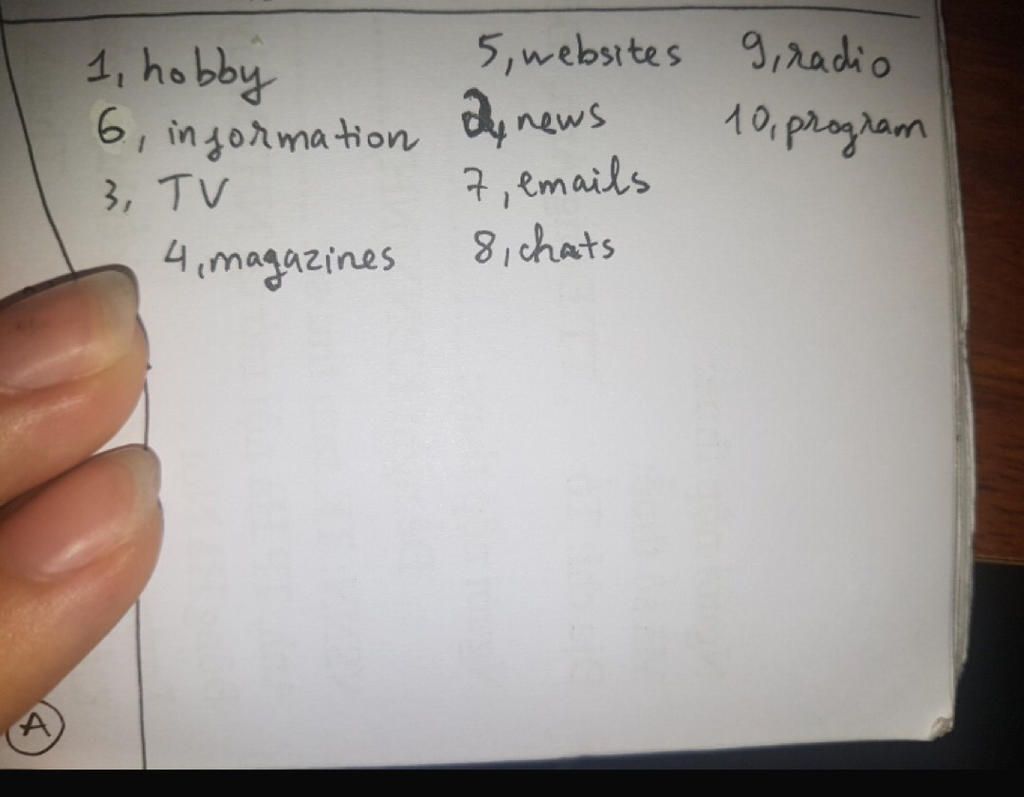 1, hobby
6, information
3, TV
4, magazines
5, websites
2, news
7, emails
8, chats
9, radio
10, program
A